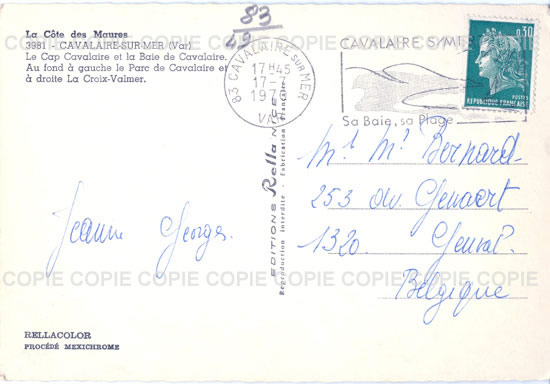 83
49
La Côte des Maures
3981 - CAVALAIRE-SUR-MER (Var)
Le Cap Cavalaire et la Baie de Cavalaire.
Au fond à gauche le Parc de Cavalaire et
à droite La Croix-Valmer.
83 CAVALAIRE SUR MER
17H45
17-7
VAR
CAVALAIRE S/MER
Sa Baie, sa Plage
0,30
POSTES
REPUBLIQUE FRANÇAISE
EDITIONS Rella NICE
Reproduction interdite - Fabrication Française
Mr Mr Bernard
253 av. Genaert
1320. Genval.
Belgique
Jeanne Georges.
COPIE COPIE COPIE COPIE COPIE COPIE COPIE COPIE COPIE
COPIE COPIE COPIE COPIE COPIE COPIE COPIE COPIE COPIE
RELLACOLOR
PROCÉDÉ MEXICHROME